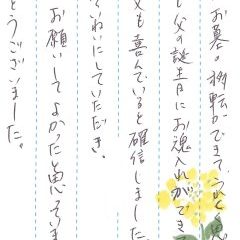 お墓の移転ができてうれしく思
し父の誕生月にお魂入れができ
父も喜んでいると確信しました。
れいにしていただき、
お願いしてよかったと思ってい
とうございました。